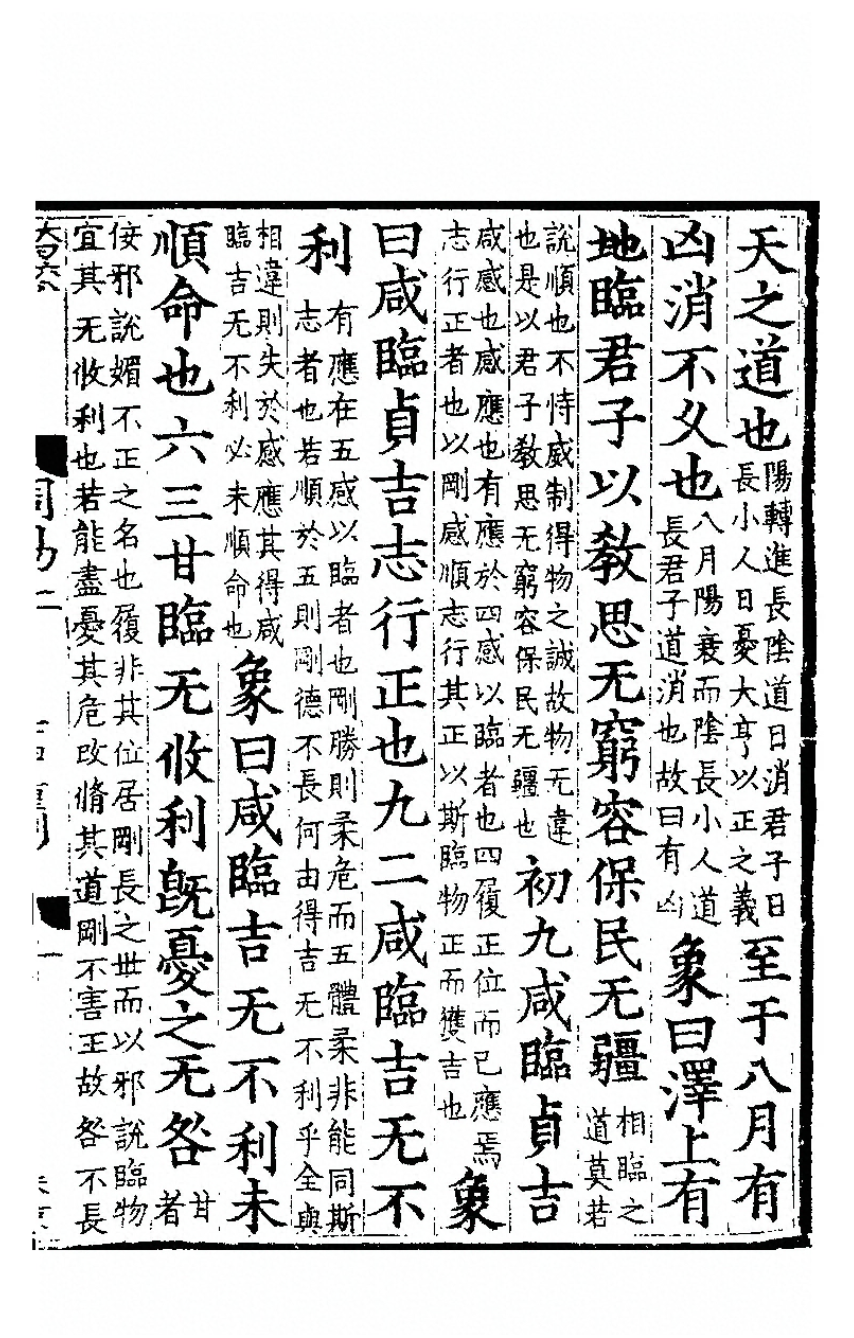 天之道也陽轉進長陰道日消君子日長小人日憂大亨以正之義至于八月有
凶消不久也八月陽衰而陰長小人道長君子道消也故曰有凶象曰澤上有
地臨君子以教思无窮容保民无疆相臨之道莫若
說順也不恃威制得物之誠故物无違也是以君子教思无窮容保民无疆也初九咸臨貞吉
咸感也感應也有應於四感以臨者也四履正位而已應焉志行正者也以剛感順志行其正以斯臨物正而獲吉也象
曰咸臨貞吉志行正也九二咸臨吉无不
利有應在五感以臨者也剛勝則柔危而五體柔非能同斯志者也若順於五則剛德不長何由得吉无不利乎全與
相違則失於感應其得咸臨吉无不利必未順命也象曰咸臨吉无不利未
順命也六三甘臨无攸利旣憂之无咎甘者
佞邪說媚不正之名也履非其位居剛長之世而以邪說臨物宜其无攸利也若能盡憂其危改脩其道剛不害正故咎不長